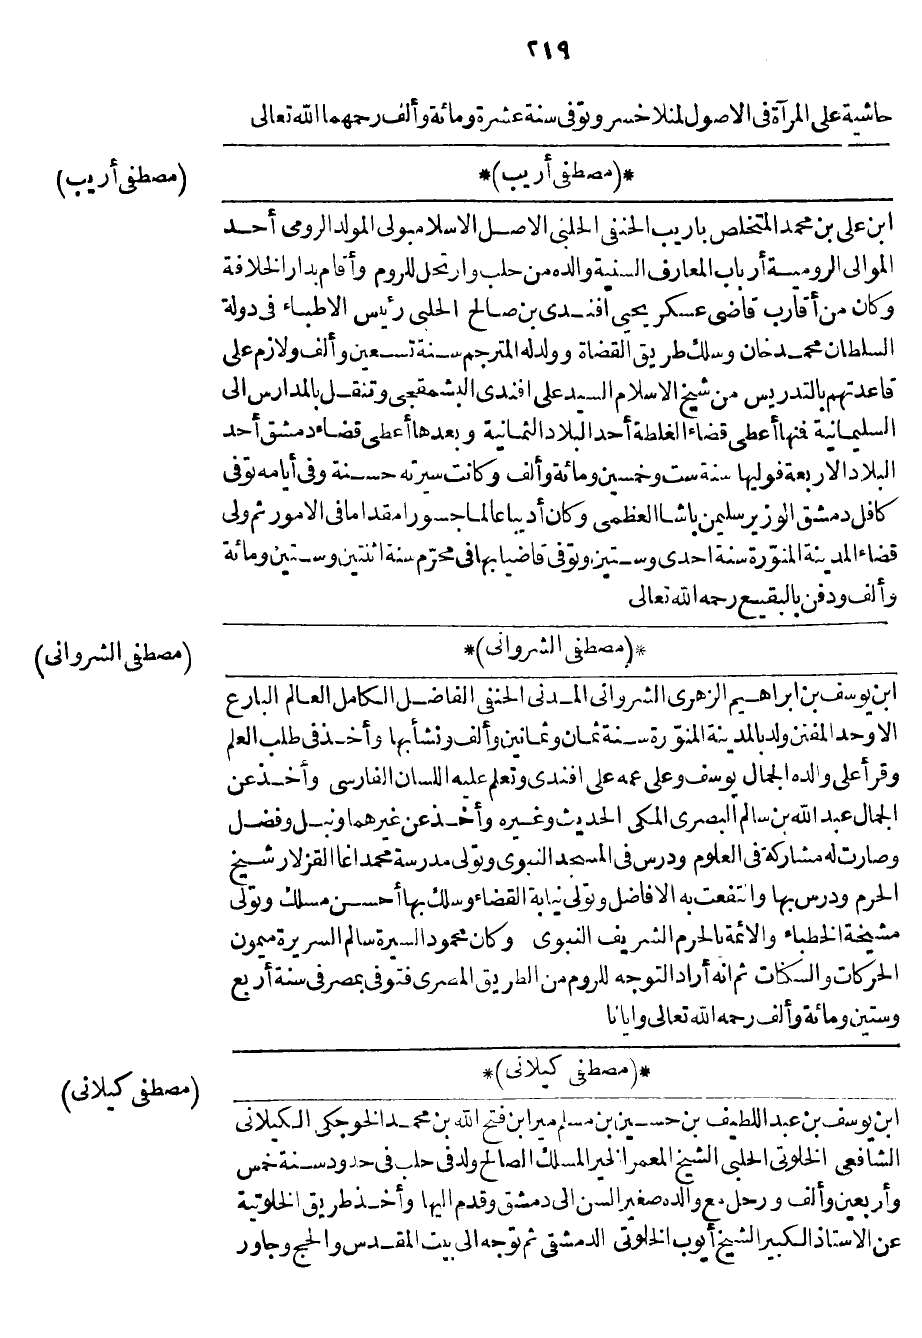 ٢١٩
حاشية على المرآة فى الاصول لمنلا خسرو وتوفى سنة عشرة ومائة وألف رحمهما الله تعالى
*(مصطفى أريب)*
(مصطفى أريب)
ابن على بن محمد المتخلص باريب الحنفى الحلبى الاصل الاسلامبولى المولد الرومى أحد
الموالى الرومية أرباب المعارف السنية والده من حلب وارتحل للروم وأقام بدار الخلافة
وكان من أقارب قاضى عسكر يحيى افندى بن صالح الحلبى رئيس الاطباء فى دولة
السلطان محمد خان وسلك طريق القضاة وولد له المترجم سنة تسعين وألف ولازم على
قاعدتهم بالتدريس من شيخ الاسلام السيد على افندى البشمقجى وتنقل بالمدارس الى
السليمانية فنها أعطى قضاء الغلطة أحد البلاد الثمانية وبعدها أعطى قضاء دمشق أحد
البلاد الاربعة فوليها سنة ست وخمسين ومائة وألف وكانت سيرته حسنة وفى أيامه توفى
كافل دمشق الوزير سليمن باشا العظمى وكان أديبا عالما جسورا مقداما فى الامور ثم ولى
قضاء المدينة المنورة سنة احدى وستين وتوفى قاضيا بها فى محرم سنة اثنتين وستين ومائة
وألف ودفن بالبقيع رحمه الله تعالى
*(مصطفى الشروانى)*
(مصطفى الشروانى)
ابن يوسف بن ابراهيم الزهرى الشروانى المدنى الحنفى الفاضل الكامل العالم البارع
الاوحد المفنن ولد بالمدينة المنورة سنة ثمان وثمانين وألف ونشأ بها وأخذ فى طلب العلم
وقرأ على والده الجمال يوسف وعلى عمه على افندى وتعلم عليه اللسان الفارسى وأخذ عن
الجمال عبد الله بن سالم البصرى المكى الحديث وغيره وأخذ عن غيرهما ونبل وفضل
وصارت له مشاركة فى العلوم ودرس فى المسجد النبوى وتولى مدرسة محمد اغا القزلار شيخ
الحرم ودرس بها وانتفعت به الافاضل وتولى نيابة القضاء وسلك بها أحسن مسلك وتولى
مشيخة الخطباء والائمة بالحرم الشريف النبوى وكان محمود السيرة سالم السريرة ميمون
الحركات والسكنات ثم انه أراد التوجه للروم من الطريق المصرى فتوفى بمصر فى سنة أربع
وستين ومائة وألف رحمه الله تعالى وايانا
*(مصطفى كيلانى)*
(مصطفى كيلانى)
ابن يوسف بن عبد اللطيف بن حسين بن مسلم ميرا بن فتح الله بن محمد الخوجكى الكيلانى
الشافعى الخلوتى الحلبى الشيخ المعمر الخير المسلك الصالح ولد فى حلب فى حدود سنة خمس
وأربعين وألف ورحل مع والده صغير السن الى دمشق وقدم اليها وأخذ طريق الخلوتية
عن الاستاذ الكبير الشيخ أيوب الخلوتى الدمشقى ثم توجه الى بيت المقدس والحج وجاور